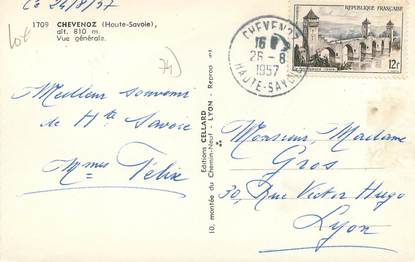 Ce 26/8/57
1709 CHEVENOZ (Haute-Savoie)
alt. 810 m.
Vue générale.
Lot
74
CHEVENOZ
16 H
26-8
1957
HAUTE-SAVOIE
REPUBLIQUE FRANÇAISE
12f
Meilleur souvenir
de Hte Savoie
Mmes Félix
Editions CELLARD
10, montée du Chemin-Neuf - LYON - Reprod
Monsieur, Madame
Gros
30, Rue Victor Hugo
Lyon